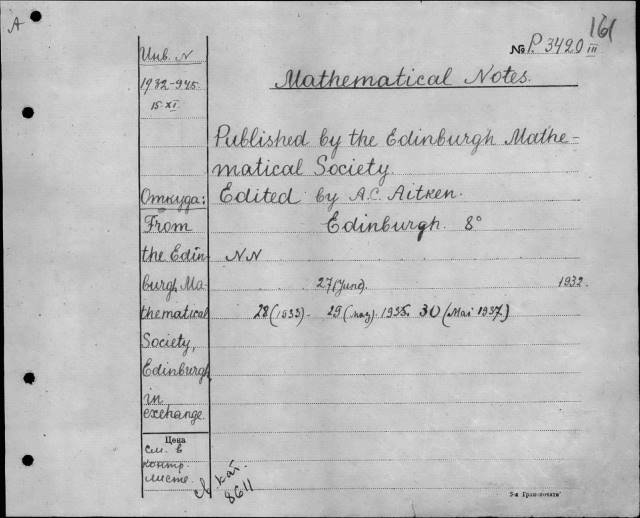 A
161
№ P. 3420 III
Инв. N
1932-945.
15 XI.
Mathematical Notes.
Published by the Edinburgh Mathe-
matical Society.
Edited by A.C. Aitken.
Edinburgh. 8°
Откуда:
From
the Edin-
burgh Ma-
thematical
Society,
Edinburgh,
in
exchange.
NN
27 (June). 1932.
28 (1933) - 29 (may). 1935. 30 (Mai 1937.)
Цена
см. в
контр.
листе.
кат.
8611